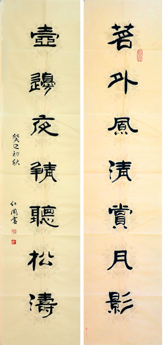 茗外風清賞月影
壺邊夜靜聽松濤
癸巳初秋